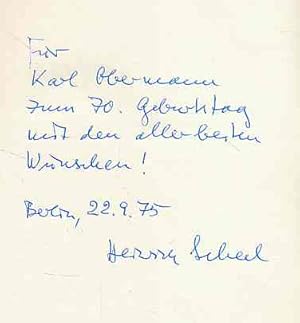 Für
Karl Obermann
zum 70. Geburtstag
mit den allerbesten
Wünschen!
Berlin, 22.9.75
Heinrich Scheel